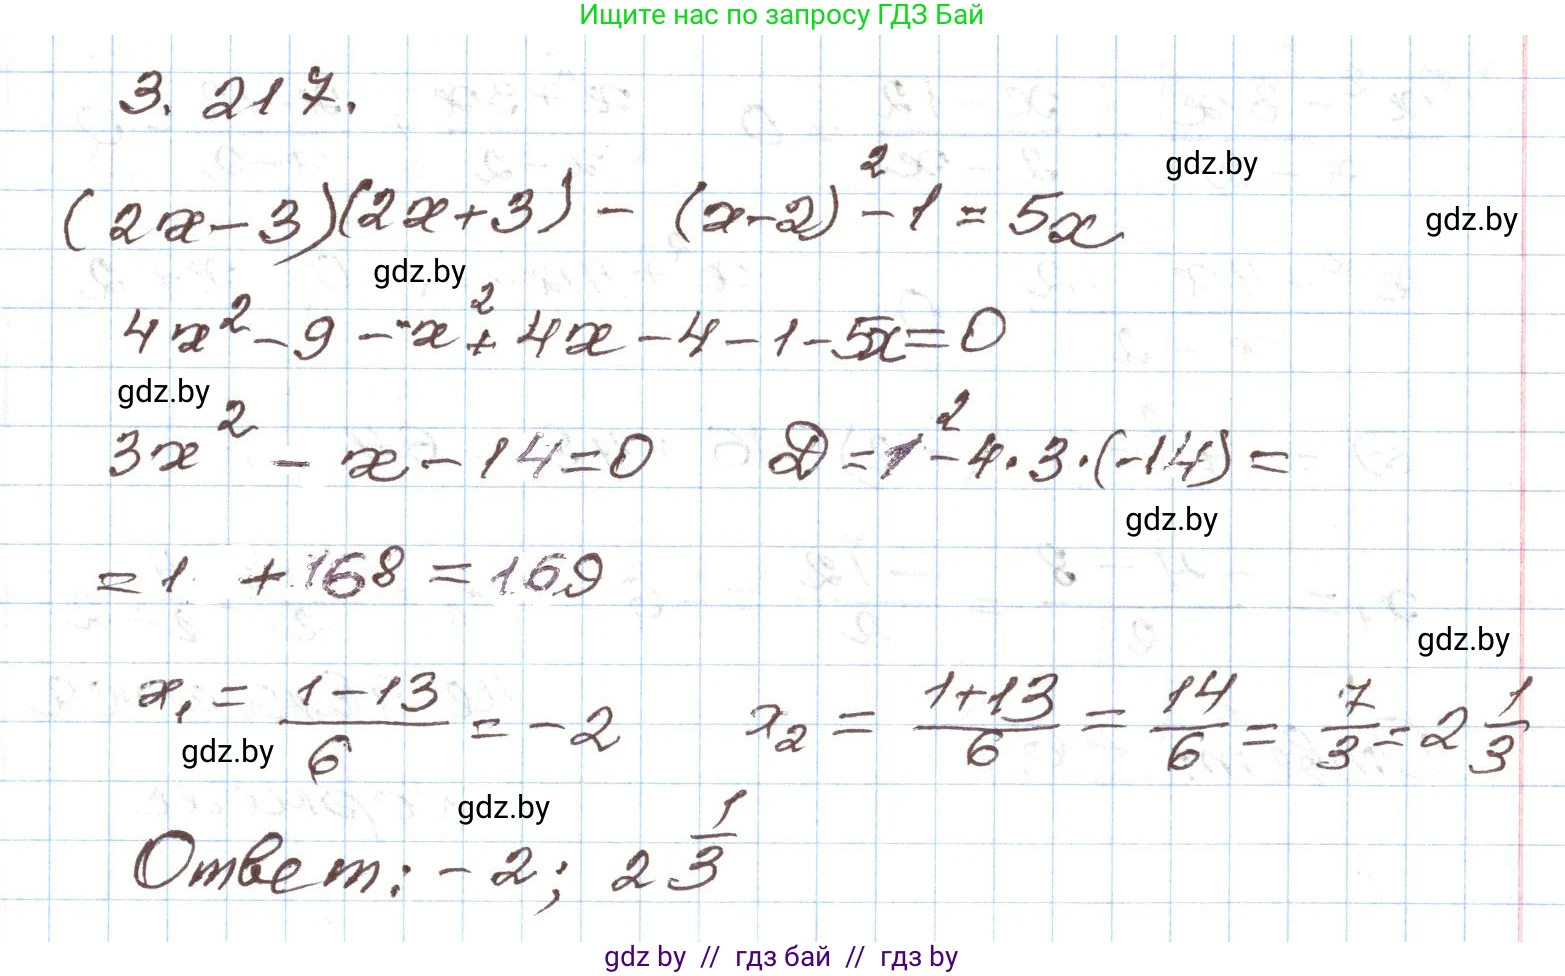 Ищите нас по запросу ГДЗ Бай
3. 217.
gdz.by
(2x-3)(2x+3) - (x-2)² - 1 = 5x
gdz.by
gdz.by
4x² - 9 - x² + 4x - 4 - 1 - 5x = 0
gdz.by
3x² - x - 14 = 0    D = 1² - 4·3·(-14) =
gdz.by
= 1 + 168 = 169
gdz.by
x₁ = (1-13)/6 = -2    x₂ = (1+13)/6 = 14/6 = 7/3 = 2 1/3
gdz.by
gdz.by
Ответ: -2; 2 1/3
gdz by // гдз бай // гдз by